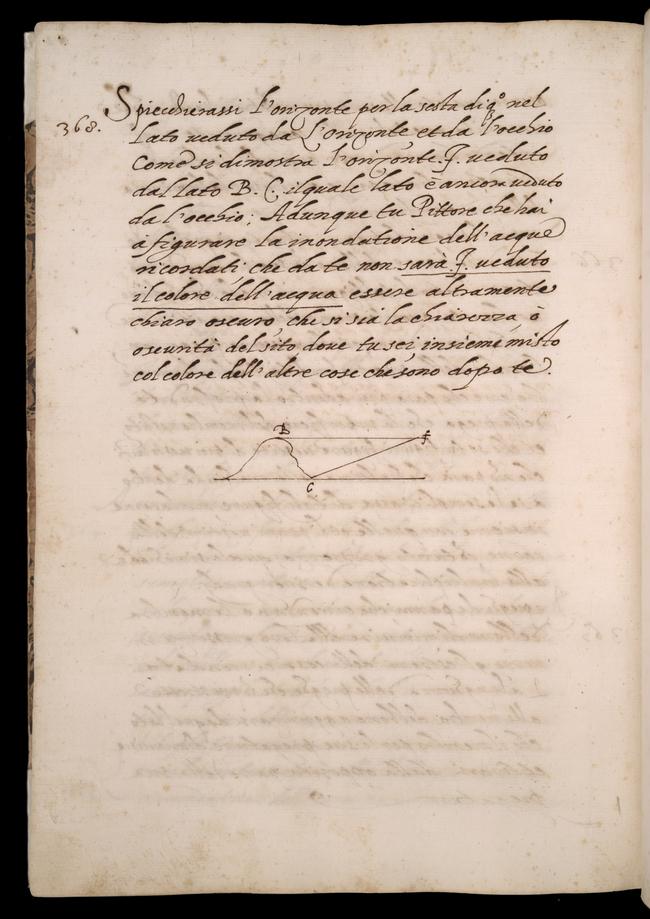 368. Specchierassi l'orizonte per la sesta di q.° nel
lato ueduto da L'orizonte, et da l'occhio
Come si dimostra l'orizonte. F. ueduto
dal lato B. C. il quale lato è ancora ueduto
da l'occhio; Adunque tu Pittore che hai
à figurare la inondatione dell'acque
ricordati che da te non sarà F. ueduto
il colore dell'acqua essere altramente
chiaro oscuro, che si sia la chiarezza, ò
oscurità del sito doue tu sei insieme misto
col colore dell'altre cose che sono dopo te.
B F
C